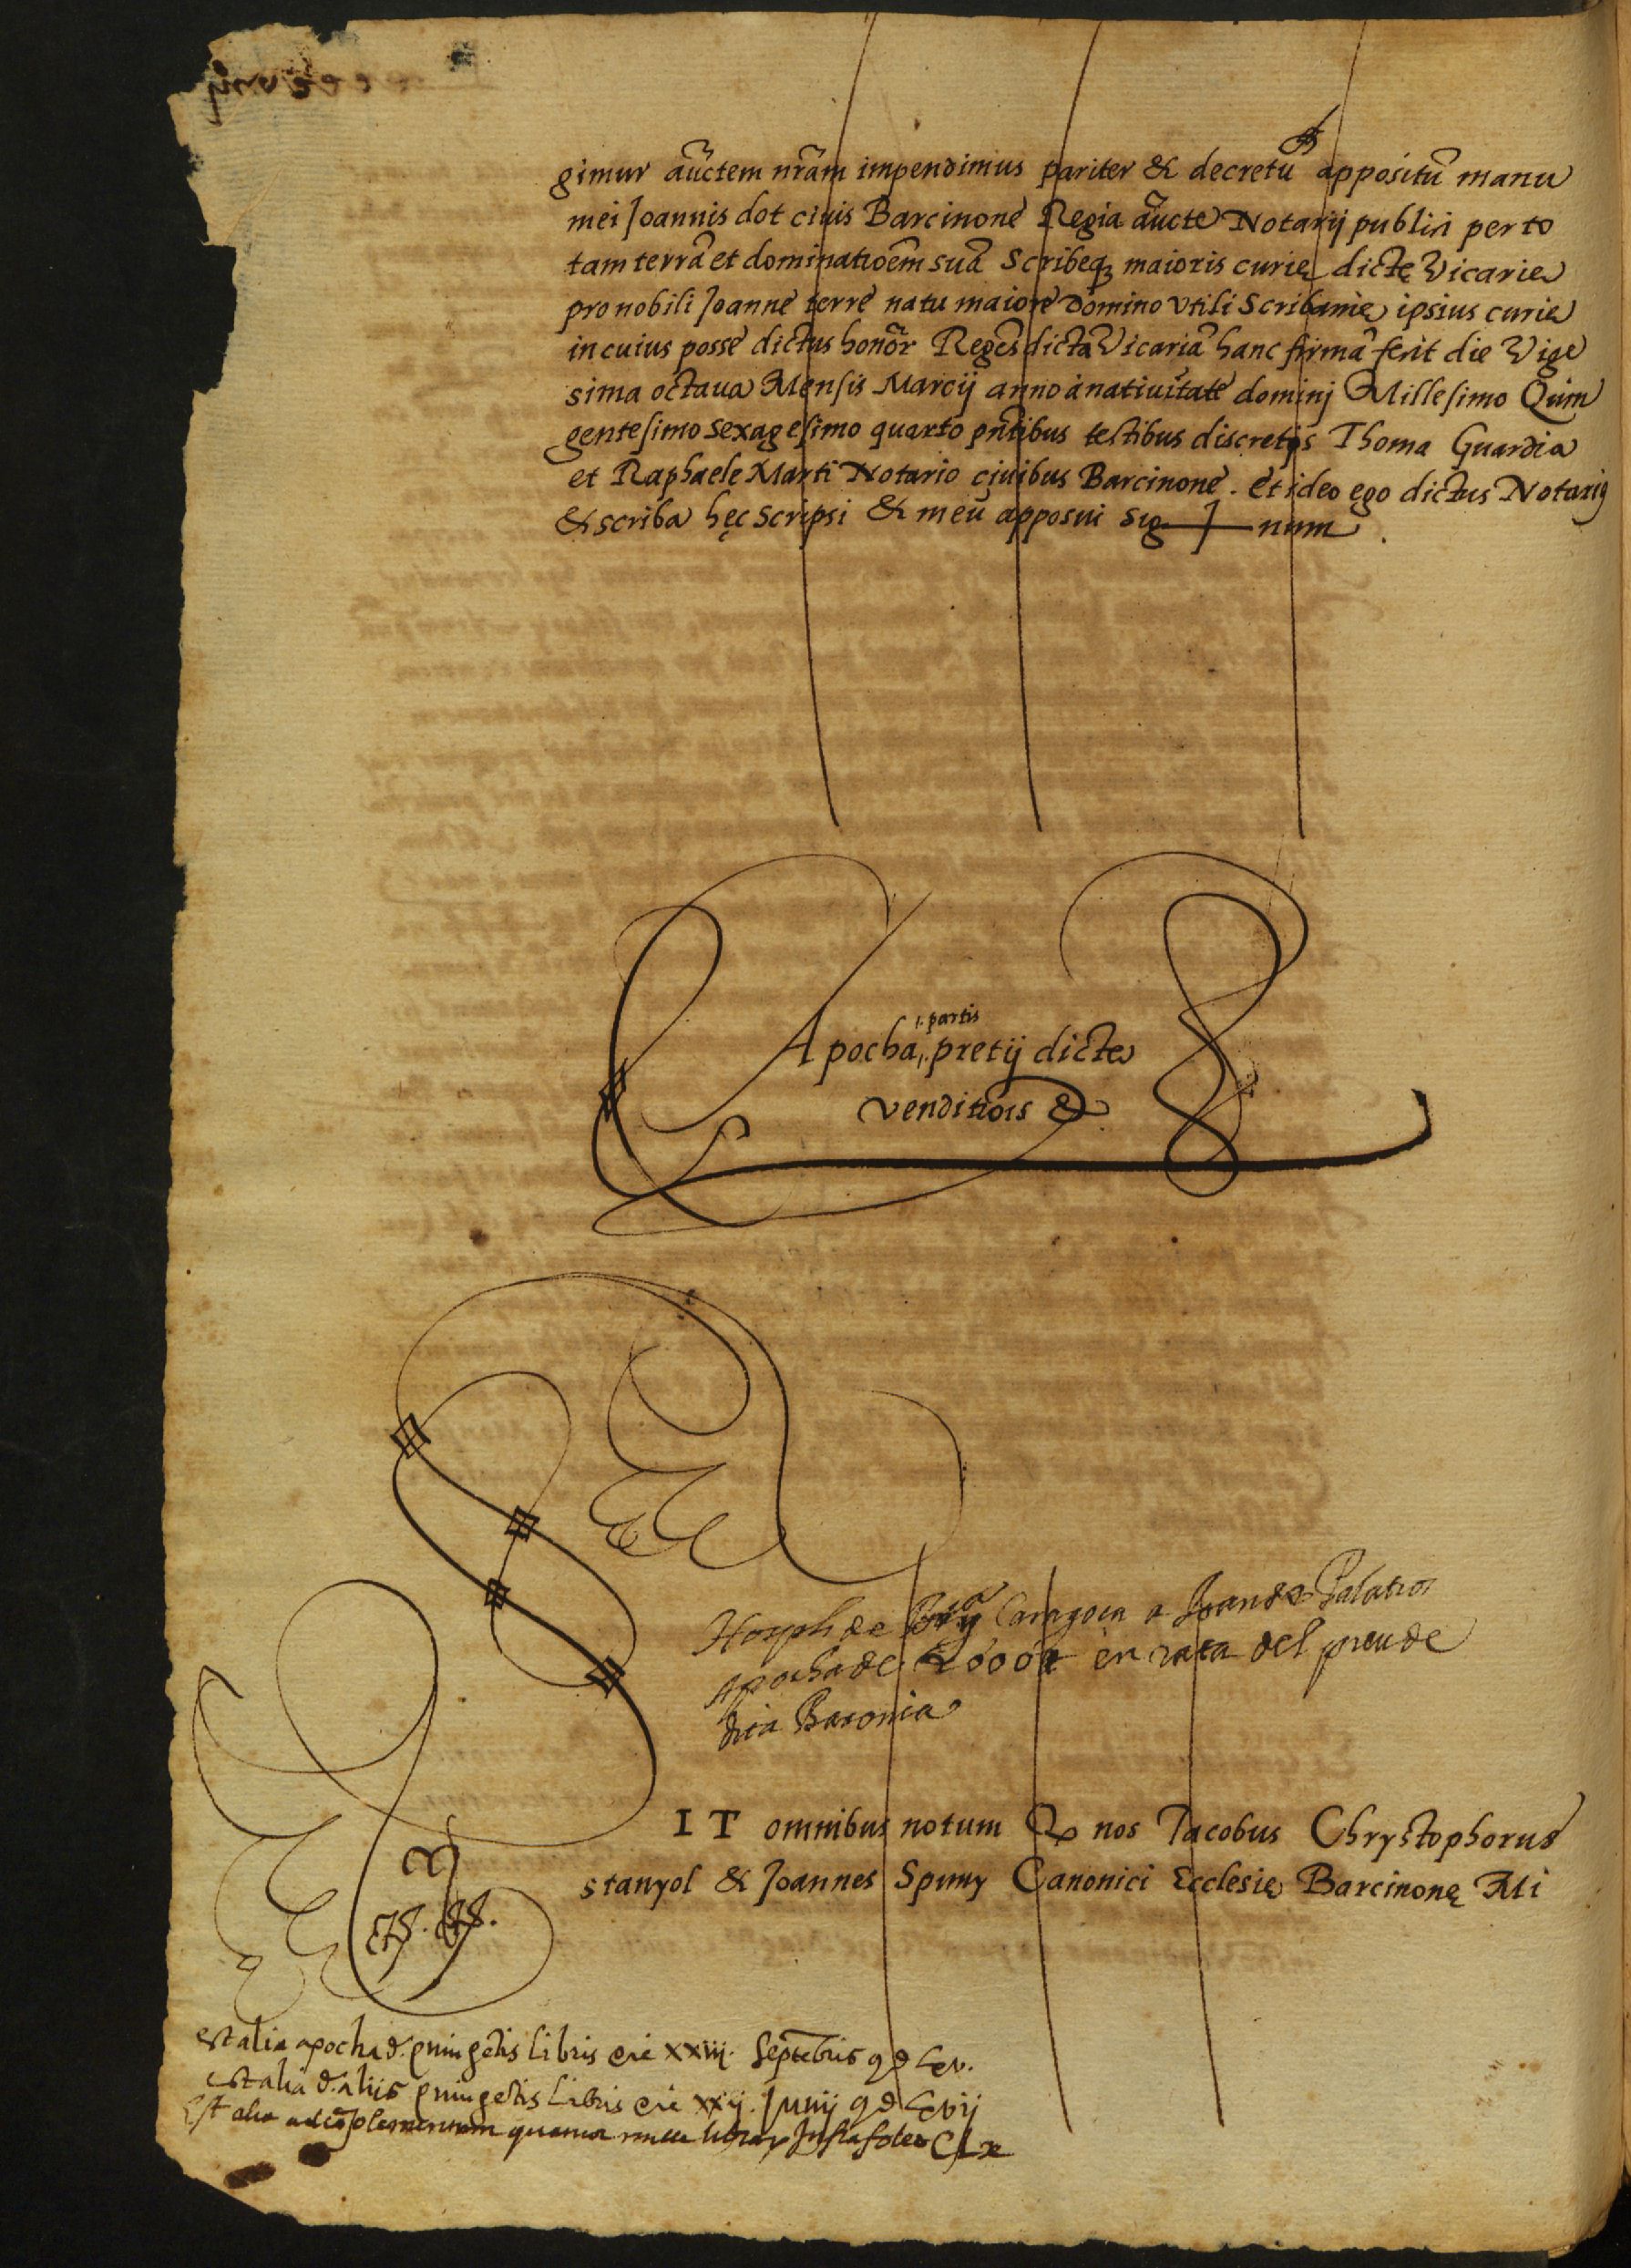 gimur auctem nram impendimus pariter & decretu appositu manu
mei Joannis dot ciuis Barcinone Regia aucte Notarij publici per to
tam terra et dominatioem sua Scribeq maioris curie dicte Vicarie
pro nobili Joanne terre natu maiore domino vtili Scribanie ipsius curie
in cuius posse dictus honor Reges dicta Vicaria hanc firma fecit die Vige
sima octaua Mensis Marcij anno a natiuitate dominj Millesimo Quin
gentesimo sexagesimo quarto pntibus testibus discretis Thoma Guardia
et Raphaele Marti Notario ciuibus Barcinone. et ideo ego dictus Notarig
& scriba hęc scripsi & meu apposui sig num.
1. partis
Apocha pretij dicte
venditiois &
apocha de 2000 en rata del preu de
dita Baronia
IT omnibus notum Q nos Jacobus Chrystophorus
stanyol & Joannes Spuny Canonici Ecclesię Barcinonę Mi
est alia apocha d. quingetis libris die xxiiij. Septebris
est alia d. aliis quingetis Libris die xxij. Junij
Est alia ad coplementum